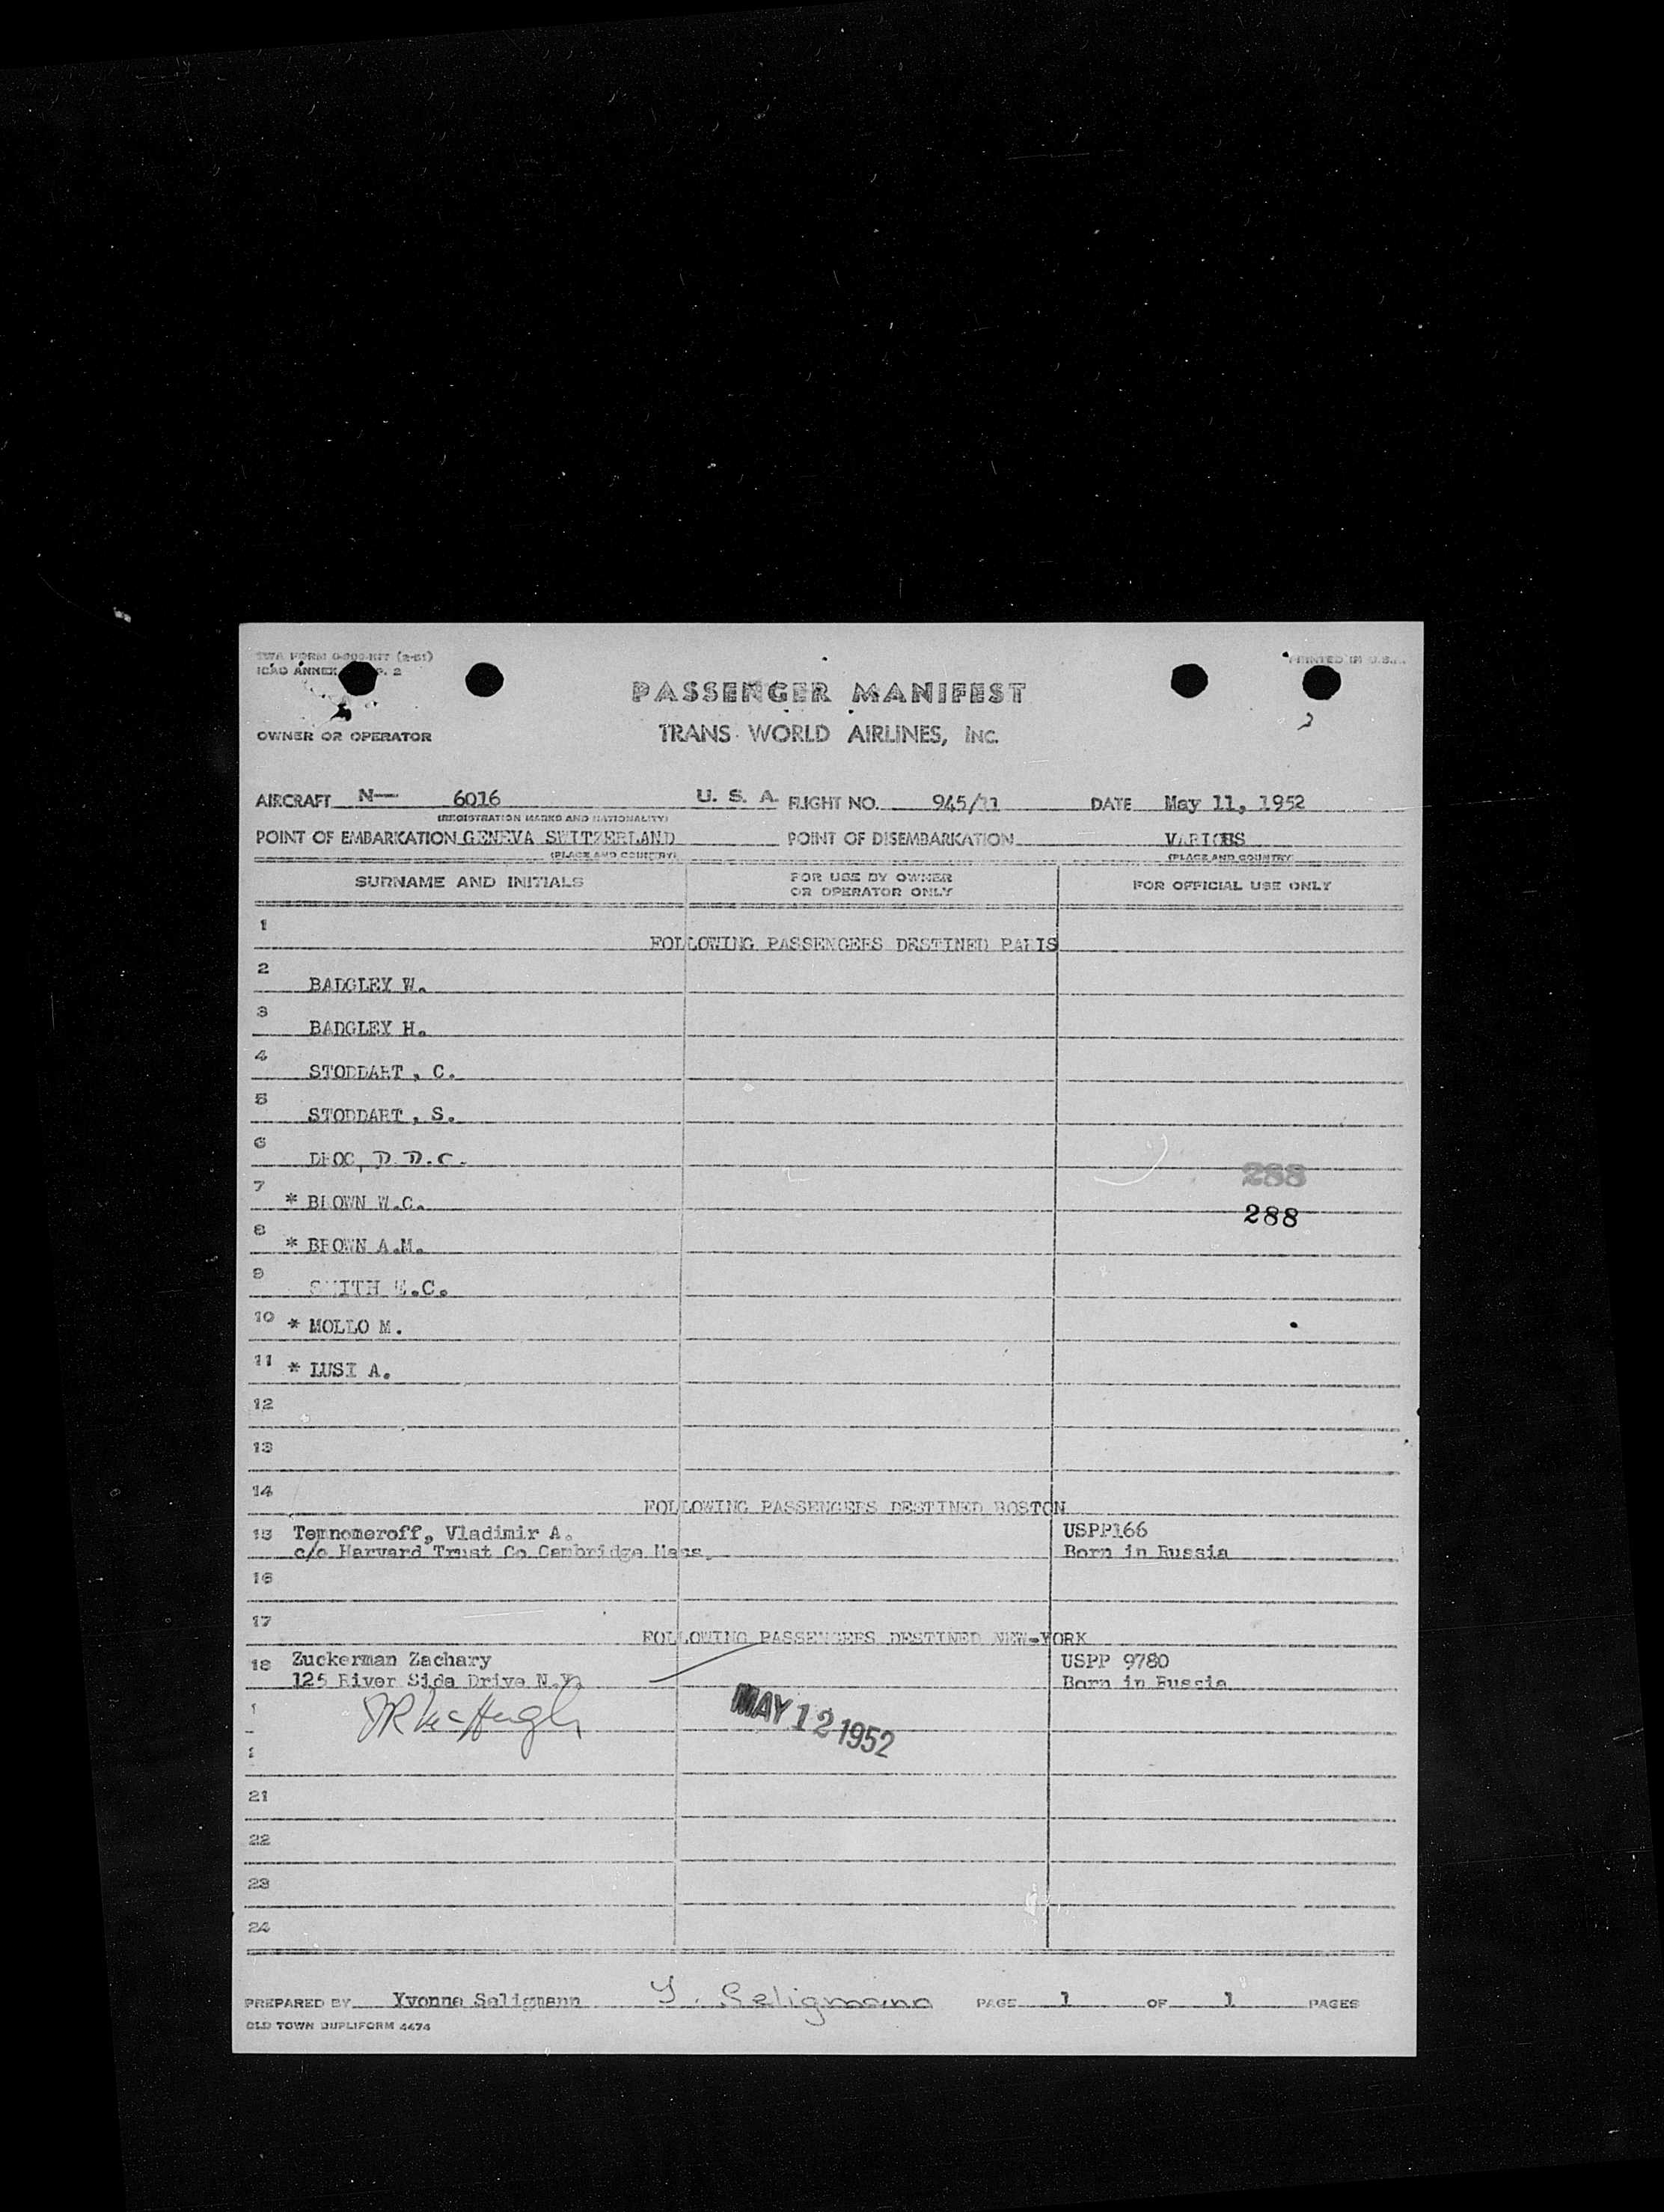 TWA FORM (2-51)
ICAO ANNEX P. 2
PRINTED IN U.S.A.
PASSENGER MANIFEST
OWNER OR OPERATOR
TRANS WORLD AIRLINES, INC.
AIRCRAFT N— 6016 U. S. A. FLIGHT NO. 945/11 DATE May 11, 1952
(REGISTRATION MARKS AND NATIONALITY)
POINT OF EMBARKATION GENEVA SWITZERLAND POINT OF DISEMBARKATION VARIOUS
(PLACE AND COUNTRY) (PLACE AND COUNTRY)
SURNAME AND INITIALS FOR USE BY OWNER OR OPERATOR ONLY FOR OFFICIAL USE ONLY
1
FOLLOWING PASSENGERS DESTINED PARIS
2 BADGLEY W.
3 BADGLEY H.
4 STODDART , C.
5 STODDART , S.
6 D.C.
288
7 * BROWN W.C.
288
8 * BROWN A.M.
9 SMITH .C.
10 * MOLLO M.
11 * LUSI A.
12
13
14
FOLLOWING PASSENGERS DESTINED BOSTON
15 Temnomeroff, Vladimir A. USPP166
c/o Harvard Trust Co Cambridge Mass. Born in Russia
16
17
FOLLOWING PASSENGERS DESTINED NEW-YORK
18 Zuckerman Zachary USPP 9780
125 River Side Drive N.Y. Born in Russia
JR McHugh
MAY 12 1952
21
22
23
24
PREPARED BY Yvonne Seligmann Y. Seligmann PAGE 1 OF 1 PAGES
OLD TOWN DUPLIFORM 4474